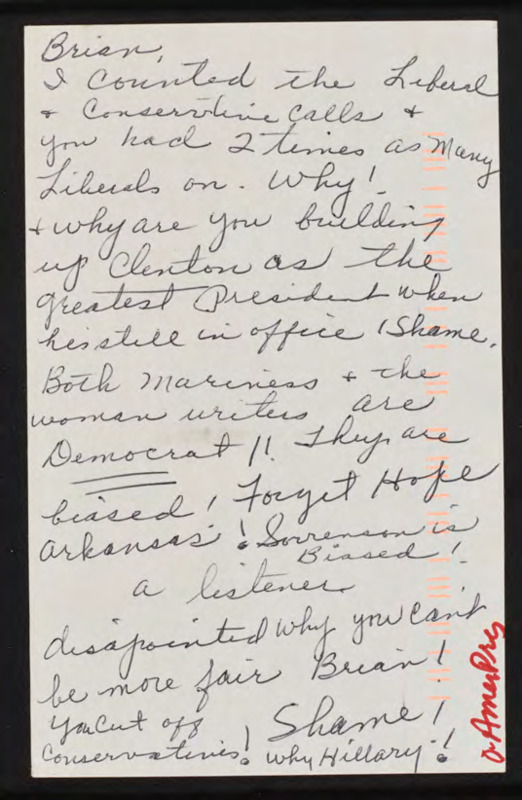 Brian,
I counted the Liberal
+ Conservative Calls +
you had 2 times as Many
Liberals on. Why!
+ why are you building
up Clenton as the
greatest President when
he is still in office! Shame.
Both Mariness + the
woman writers are
Democrat!! They are
biased! Forget Hope
Arkansas! Sorrenson is
Biased!
a listener
disapointed why you can't
be more fair Brian!
You Cut off
Conservatives! Shame!
Why Hillary!